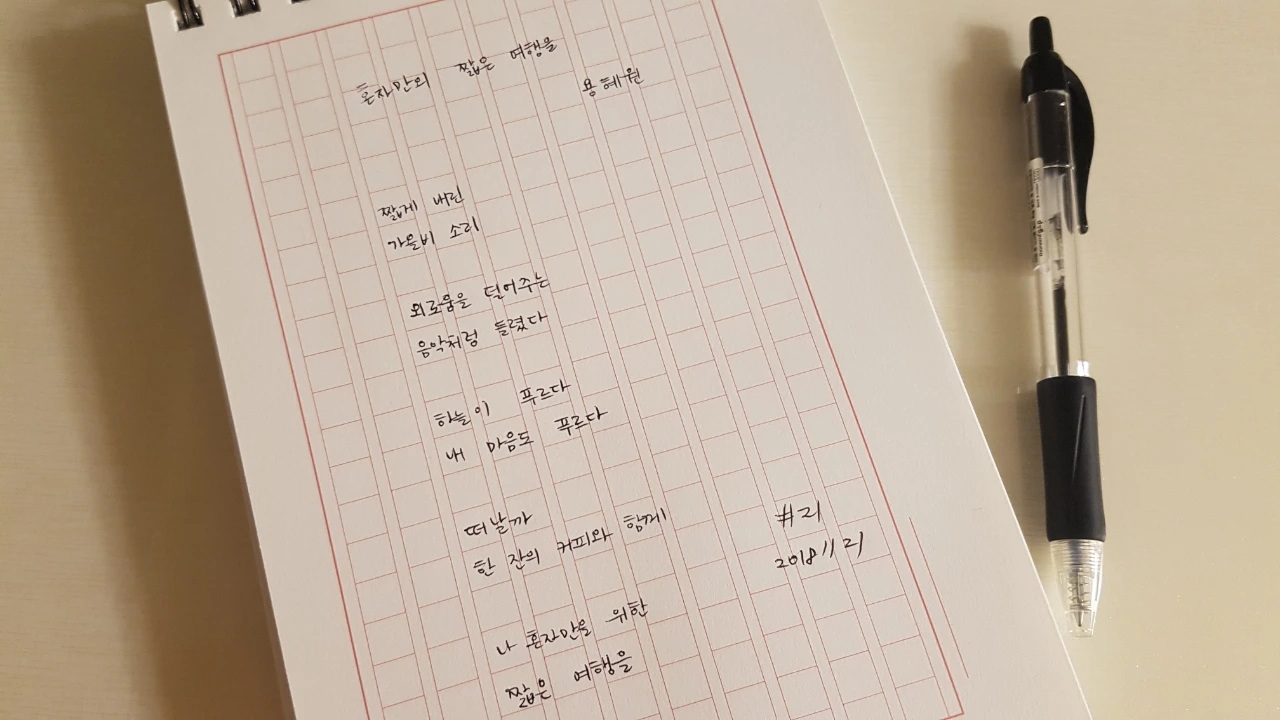 혼자만의 짧은 여행을
용혜원
짧게 내린
가을비 소리
외로움을 덜어주는
음악처럼 들렸다
하늘이 푸르다
내 마음도 푸르다
떠날까
한 잔의 커피와 함께
#21
2018 11 21
나 혼자만을 위한
짧은 여행을